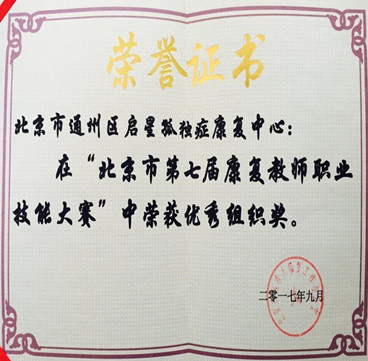 荣誉证书
北京市通州区启星孤独症康复中心:
在“北京市第七届康复教师职业
技能大赛”中荣获优秀组织奖。
二零一七年九月